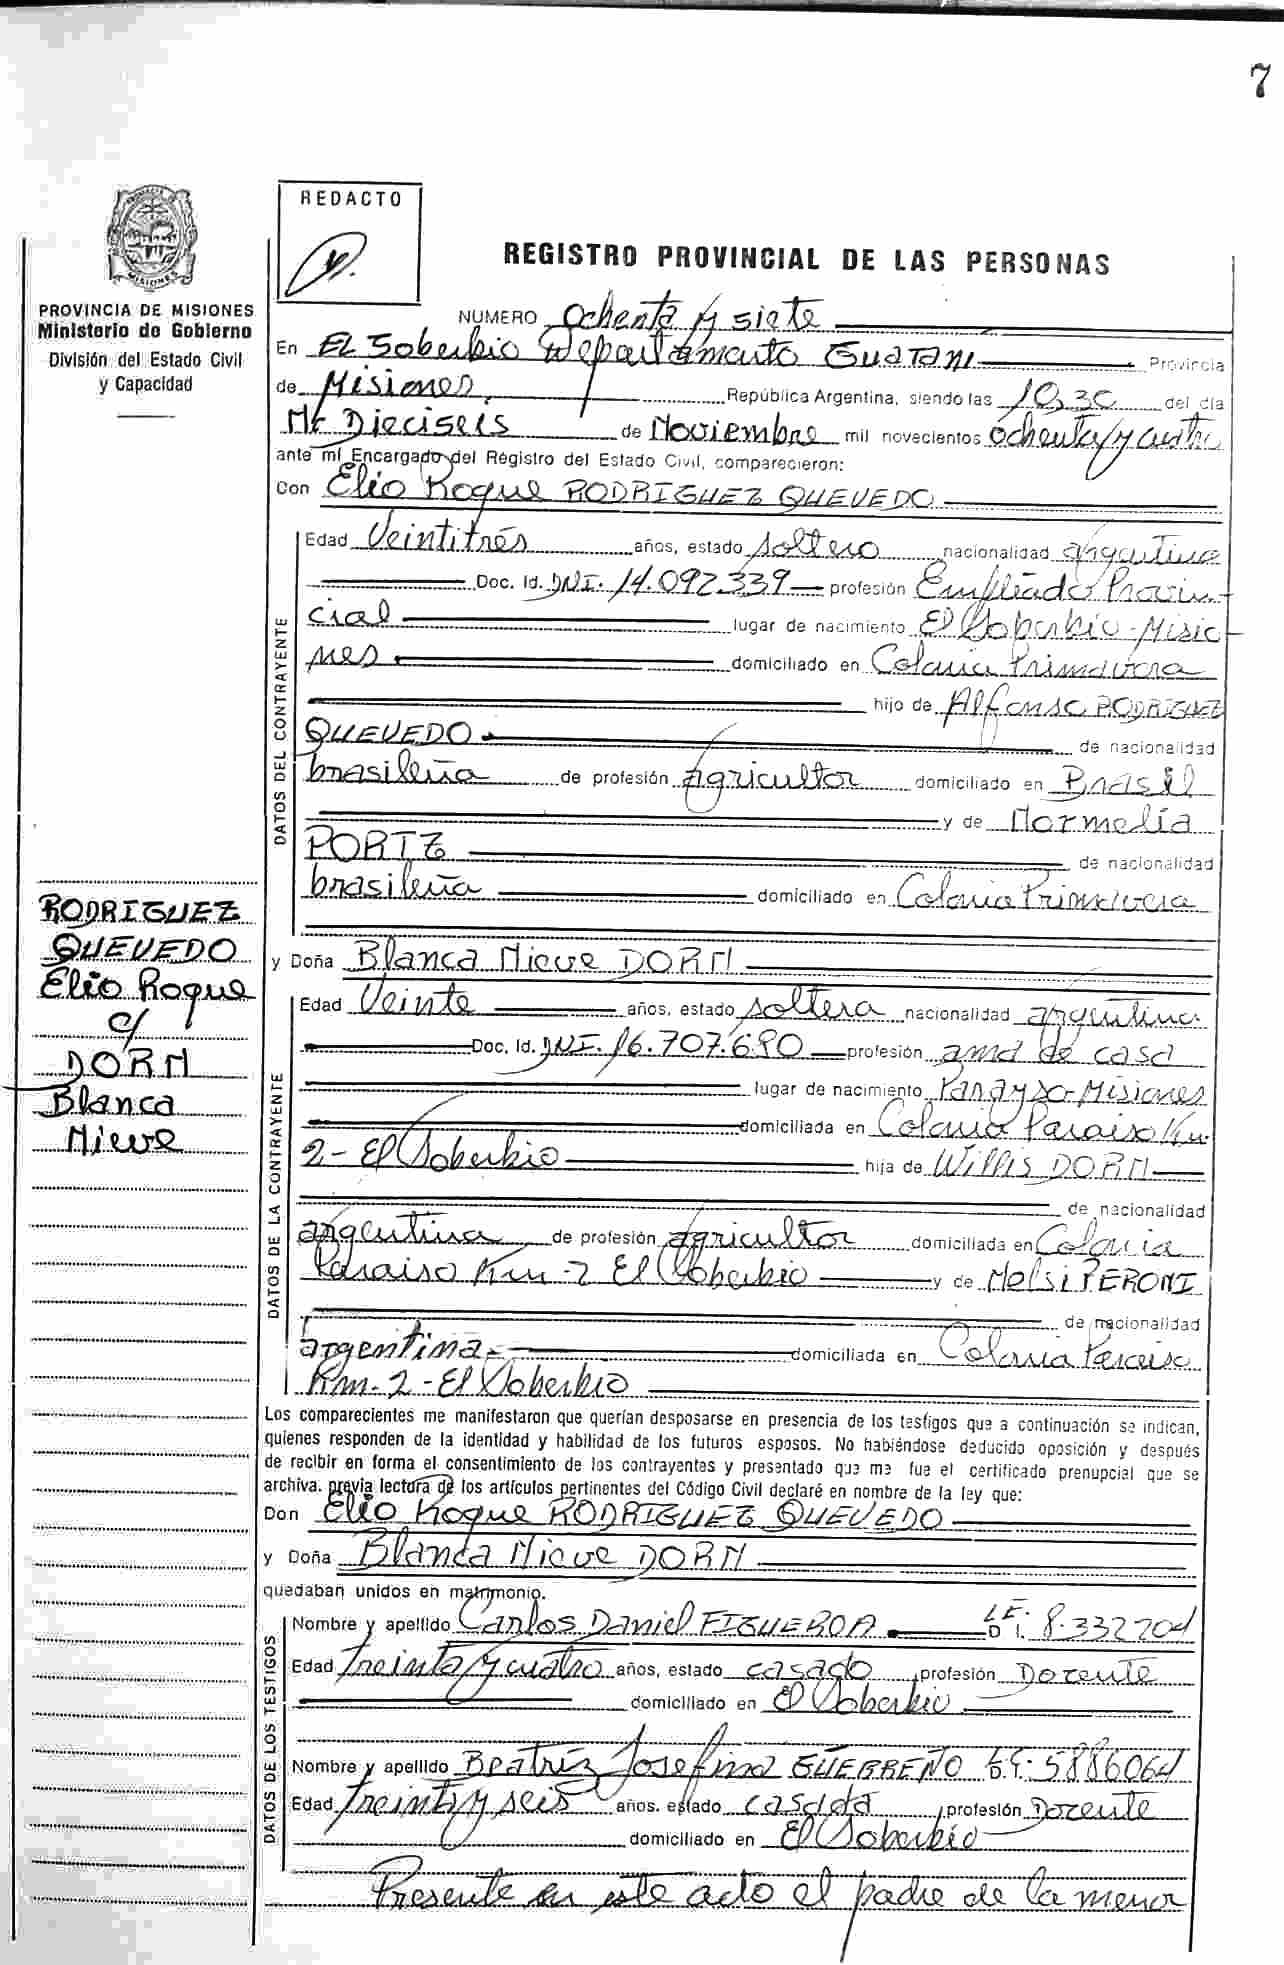 7
REDACTO
REGISTRO PROVINCIAL DE LAS PERSONAS
PROVINCIA DE MISIONES
Ministerio de Gobierno
División del Estado Civil
y Capacidad
NUMERO Ochenta y siete
En El Soberbio Departamento GUARANI Provincia
de Misiones República Argentina, siendo las 10,30 del día
Dieciseis de Noviembre mil novecientos ochenta y cuatro
ante mí Encargado del Registro del Estado Civil, comparecieron:
Don Elio Roque RODRIGUEZ QUEVEDO
DATOS DEL CONTRAYENTE
Edad Veintitrés años, estado soltero nacionalidad argentina
Doc. Id. DNI. 14.092.339 profesión Empleado Provin-
cial lugar de nacimiento El Soberbio-Misio
nes domiciliado en Colonia Primavera
hijo de Alfonso RODRIGUEZ
QUEVEDO de nacionalidad
brasileña de profesión agricultor domiciliado en Brasil
y de Normelia
PORTZ de nacionalidad
brasileña domiciliado en Colonia Primavera
RODRIGUEZ
QUEVEDO
Elio Roque
c/
DORN
Blanca
Nieve
y Doña Blanca Nieve DORN
DATOS DE LA CONTRAYENTE
Edad Veinte años, estado soltera nacionalidad argentina
Doc. Id. DNI. 16.707.680 profesión ama de casa
lugar de nacimiento Misiones
domiciliada en Colonia Paraiso Km.
2- El Soberbio hija de Willis DORN
de nacionalidad
argentina de profesión agricultor domiciliada en Colonia
Paraiso Km-2 El Soberbio y de Nelsi PERONI
de nacionalidad
argentina- domiciliada en Colonia Paraiso
Km-2-El Soberbio
Los comparecientes me manifestaron que querían desposarse en presencia de los testigos que a continuación se indican,
quienes responden de la identidad y habilidad de los futuros esposos. No habiéndose deducido oposición y después
de recibir en forma el consentimiento de los contrayentes y presentado que me fue el certificado prenupcial que se
archiva. previa lectura de los artículos pertinentes del Código Civil declaré en nombre de la ley que:
Don Elio Roque RODRIGUEZ QUEVEDO
y Doña Blanca Nieve DORN
quedaban unidos en matrimonio.
DATOS DE LOS TESTIGOS
Nombre y apellido Carlos Daniel FIGUEROA L.E. D I. 8.332704
Edad Treinta y cuatro años, estado casado profesión Docente
domiciliado en El Soberbio
Nombre y apellido Beatríz Josefina GUERREÑO 5886064
Edad Treinta y seis años. estado casada profesión Docente
domiciliado en El Soberbio
Presente en este acto el padre de la menor